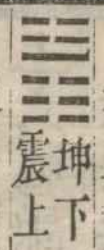 坤下
震上